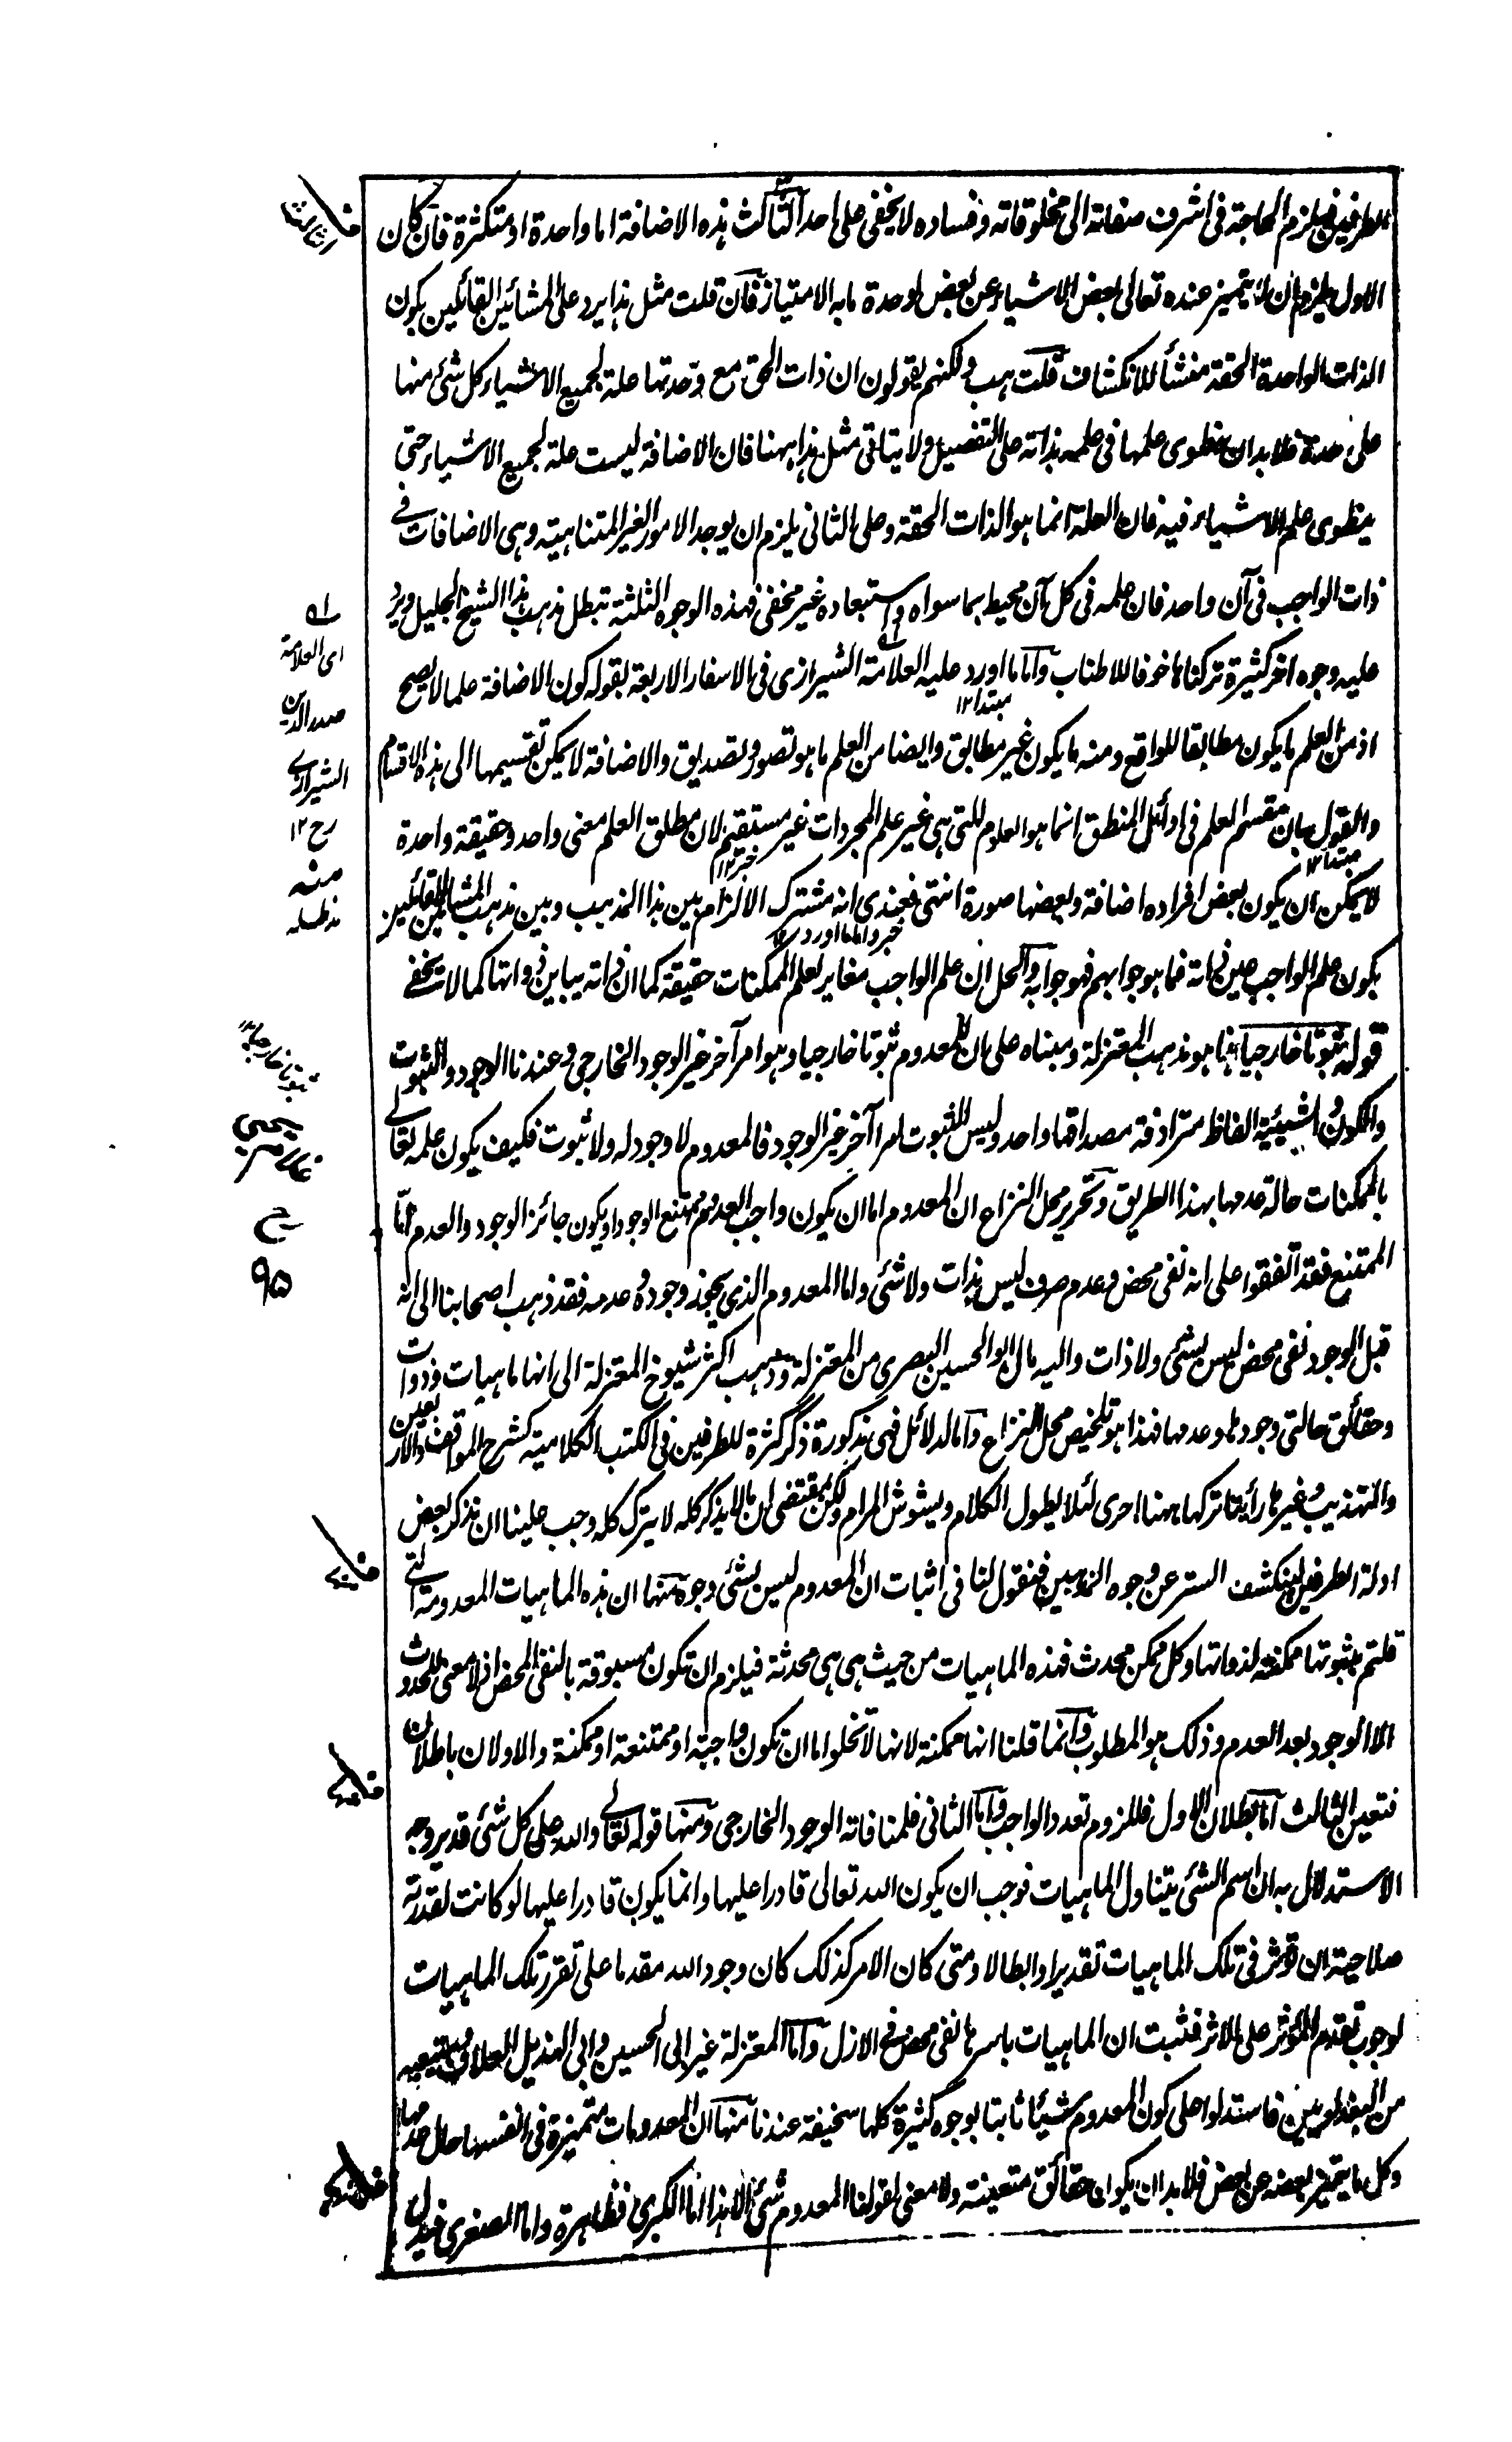 الطرفين فيلزم الحاجة في اشرف صفاته الى مخلوقاته وفساده لا يخفى على احد الثالث هذه الاضافة اما واحدة او متكثرة فان كان
الاول يلزم ان لا يتميز عنده تعالى بعض الاشياء عن بعض لوحدة ما به الامتياز فان قلت مثل هذا يرد على المشائين القائلين بكون
الذات الواحدة الحقة منشأ للانكشاف قلت هب ولكنهم يقولون ان ذات الحق مع وحدتها علة لجميع الاشياء كل شئ منها
على حدة فلا بد ان ينطوى علمها في علمه بذاته على التفصيل ولا يتاتى مثل هذا ههنا فان الاضافة ليست علة لجميع الاشياء حتى
ينطوى علم الاشياء فيه فان العلة انما هو الذات الحقة وعلى الثاني يلزم ان يوجد الامور الغير المتناهية وهى الاضافات في
ذات الواجب في آن واحد فان علمه في كل آن محيط بما سواه واستبعاده غير مخفى فهذه الوجوه الثلثة تبطل مذهب هذا الشيخ الجليل ويرد
عليه وجوه اخر كثيرة تركناها خوفا للاطناب واما ما اورد عليه العلامة الشيرازى في الاسفار الاربعة بقوله كون الاضافة علما لا يصح
مبتدا ١٢
اذ من العلم ما يكون مطابقا للواقع ومنه ما يكون غير مطابق وايضا من العلم ما هو تصور وتصديق والاضافة لا يمكن تقسيمها الى هذه الاقسام
والقول بان مقسم العلم في اوائل المنطق انما هو العلوم التى هى غير علم المجردات غير مستقيم لان مطلق العلم معنى واحد وحقيقة واحدة
مبتدا ١٢ خبر ١٢
لا يمكن ان يكون بعض افراده اضافة وبعضها صورة انتهى فعندى انه مشترك الالزام بين هذا المذهب وبين مذهب المشائين القائلين
خبر واما ما اورد ١٢
بكون علم الواجب عين ذاته فما هو جوابهم فهو جوابه والحل ان علم الواجب مغاير لعلم الممكنات حقيقة كما ان ذاته يباين ذواتها كما لا يخفى
قوله ثبوتا خارجيا هذا هو مذهب المعتزلة ومبناه على ان للمعدوم ثبوتا خارجيا وهو امر آخر غير الوجود الخارجى وعندنا الوجود والثبوت
والكون والشيئية الفاظ مترادفة مصداقها واحد وليس للثبوت امرا آخر غير الوجود فالمعدوم لا وجود له ولا ثبوت فكيف يكون علمه تعالى
بالممكنات حالة عدمها بهذا الطريق وتحرير محل النزاع ان المعدوم اما ان يكون واجب العدم ممتنع الوجود او يكون جائز الوجود والعدم اما
الممتنع فقد اتفقوا على انه نفى محض وعدم صرف ليس بذات ولا شئ واما المعدوم الذى يجوز وجوده وعدمه فقد ذهب اصحابنا الى انه
قبل الوجود نفى محض ليس بشئ ولا ذات واليه مال ابو الحسين البصرى من المعتزلة وذهب اكثر شيوخ المعتزلة الى انها ماهيات وذوات
وحقائق حالتى وجودها وعدمها فهذا هو تلخيص محل النزاع واما الدلائل فهى مذكورة ذكر كثرة للطرفين في الكتب الكلامية كشرح المواقف والاربعين
والتهذيب وغيرها رأينا تركها ههنا احرى لئلا يطول الكلام ويشوش المرام ولكن بمقتضى ان ما لا يذكر كله لا يترك كله وجب علينا ان نذكر بعض
ادلة الطرفين لينكشف الستر عن وجوه المذهبين فنقول لنا في اثبات ان المعدوم ليس بشئ وجوه منها ان هذه الماهيات المعدومة التى
قلتم بثبوتها ممكنة لذواتها وكل ممكن محدث فهذه الماهيات من حيث هى هى محدثة فيلزم ان تكون مسبوقة بالنفى المحض اذ لا معنى للحدوث
الا الوجود بعد العدم وذلك هو المطلوب وانما قلنا انها ممكنة لانها لا تخلوا اما ان تكون واجبة او ممتنعة او ممكنة والاولان باطلان
فتعين الثالث اما بطلان الاول فللزوم تعدد الواجب واما الثاني فلمنافاته الوجود الخارجى ومنها قوله تعالى والله على كل شئ قدير وجه
الاستدلال به ان اسم الشئ يتناول الماهيات فوجب ان يكون الله تعالى قادرا عليها وانما يكون قادرا عليها لو كانت لقدرته
صلاحية ان تؤثر في تلك الماهيات تقديرا وابطالا ومتى كان الامر كذلك كان وجود الله مقدما على تقرر تلك الماهيات
لوجوب تقدم المؤثر على الاثر فثبت ان الماهيات باسرها نفى محض في الازل واما المعتزلة غير ابى الحسين وابى الهذيل العلاف ومتبعيه
من البغداديين فاستدلوا على كون المعدوم شيئا ثابتا بوجوه كثيرة كلها سخيفة عندنا منها ان المعدومات متميزة في انفسها حال عدمها
وكل ما يتميز بعضه عن بعض فلا بد ان يكون حقائق متعينة ولا معنى لقولنا المعدوم شئ الا هذا اما الكبرى فظاهرة واما الصغرى فيدل
الثالث
اى العلامة
صدر الدين
الشيرازى
رح ١٢
منه
مدظله